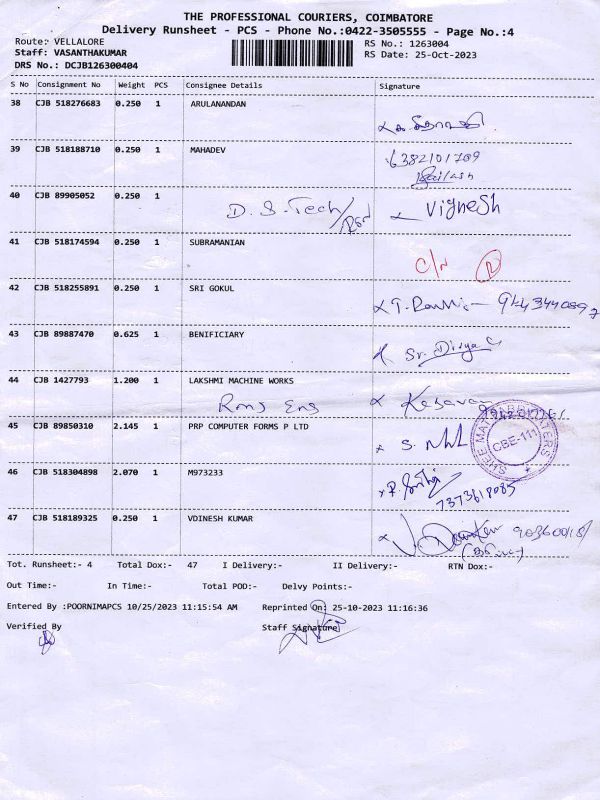 THE PROFESSIONAL COURIERS, COIMBATORE
Delivery Runsheet - PCS - Phone No.:0422-3505555 - Page No.:4
Route: VELLALORE RS No.: 1263004
Staff: VASANTHAKUMAR RS Date: 25-Oct-2023
DRS No.: DCJB126300404
S No Consignment No Weight PCS Consignee Details Signature
38 CJB 518276683 0.250 1 ARULANANDAN
39 CJB 518188710 0.250 1 MAHADEV 6382101709
Kailash
40 CJB 89905052 0.250 1
D.S.Tech/ Vignesh
41 CJB 518174594 0.250 1 SUBRAMANIAN
C/N R
42 CJB 518255891 0.250 1 SRI GOKUL
43 CJB 89887470 0.625 1 BENIFICIARY
Sr. Divya C
44 CJB 1427793 1.200 1 LAKSHMI MACHINE WORKS
Rms Eng Kesavan
45 CJB 89850310 2.145 1 PRP COMPUTER FORMS P LTD
CBE-111
46 CJB 518304898 2.070 1 M973233
7373618085
47 CJB 518189325 0.250 1 VDINESH KUMAR
Tot. Runsheet:- 4 Total Dox:- 47 I Delivery:- II Delivery:- RTN Dox:-
Out Time:- In Time:- Total POD:- Delvy Points:-
Entered By :POORNIMAPCS 10/25/2023 11:15:54 AM Reprinted On: 25-10-2023 11:16:36
Verified By Staff Signature